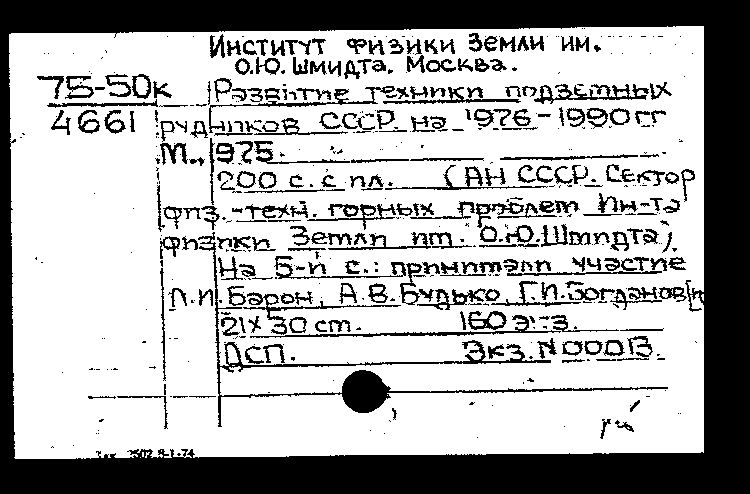 Институт физики Земли им.
О.Ю. Шмидта. Москва.
75-50к Развитие техники подземных
4661 рудников СССР на 1976-1990 гг
М., 1975.
200 с. с пл. (АН СССР. Сектор
физ.-техн. горных проблем Ин-та
физики Земли им. О.Ю.Шмидта).
На 5-й с.: принимали участие
Л.И. Барон, А.В. Будько, Г.И. Богданов [и
21x30 cm. 160 экз.
ДСП. Экз. N 00013.
Зак. 2502 8-1.74